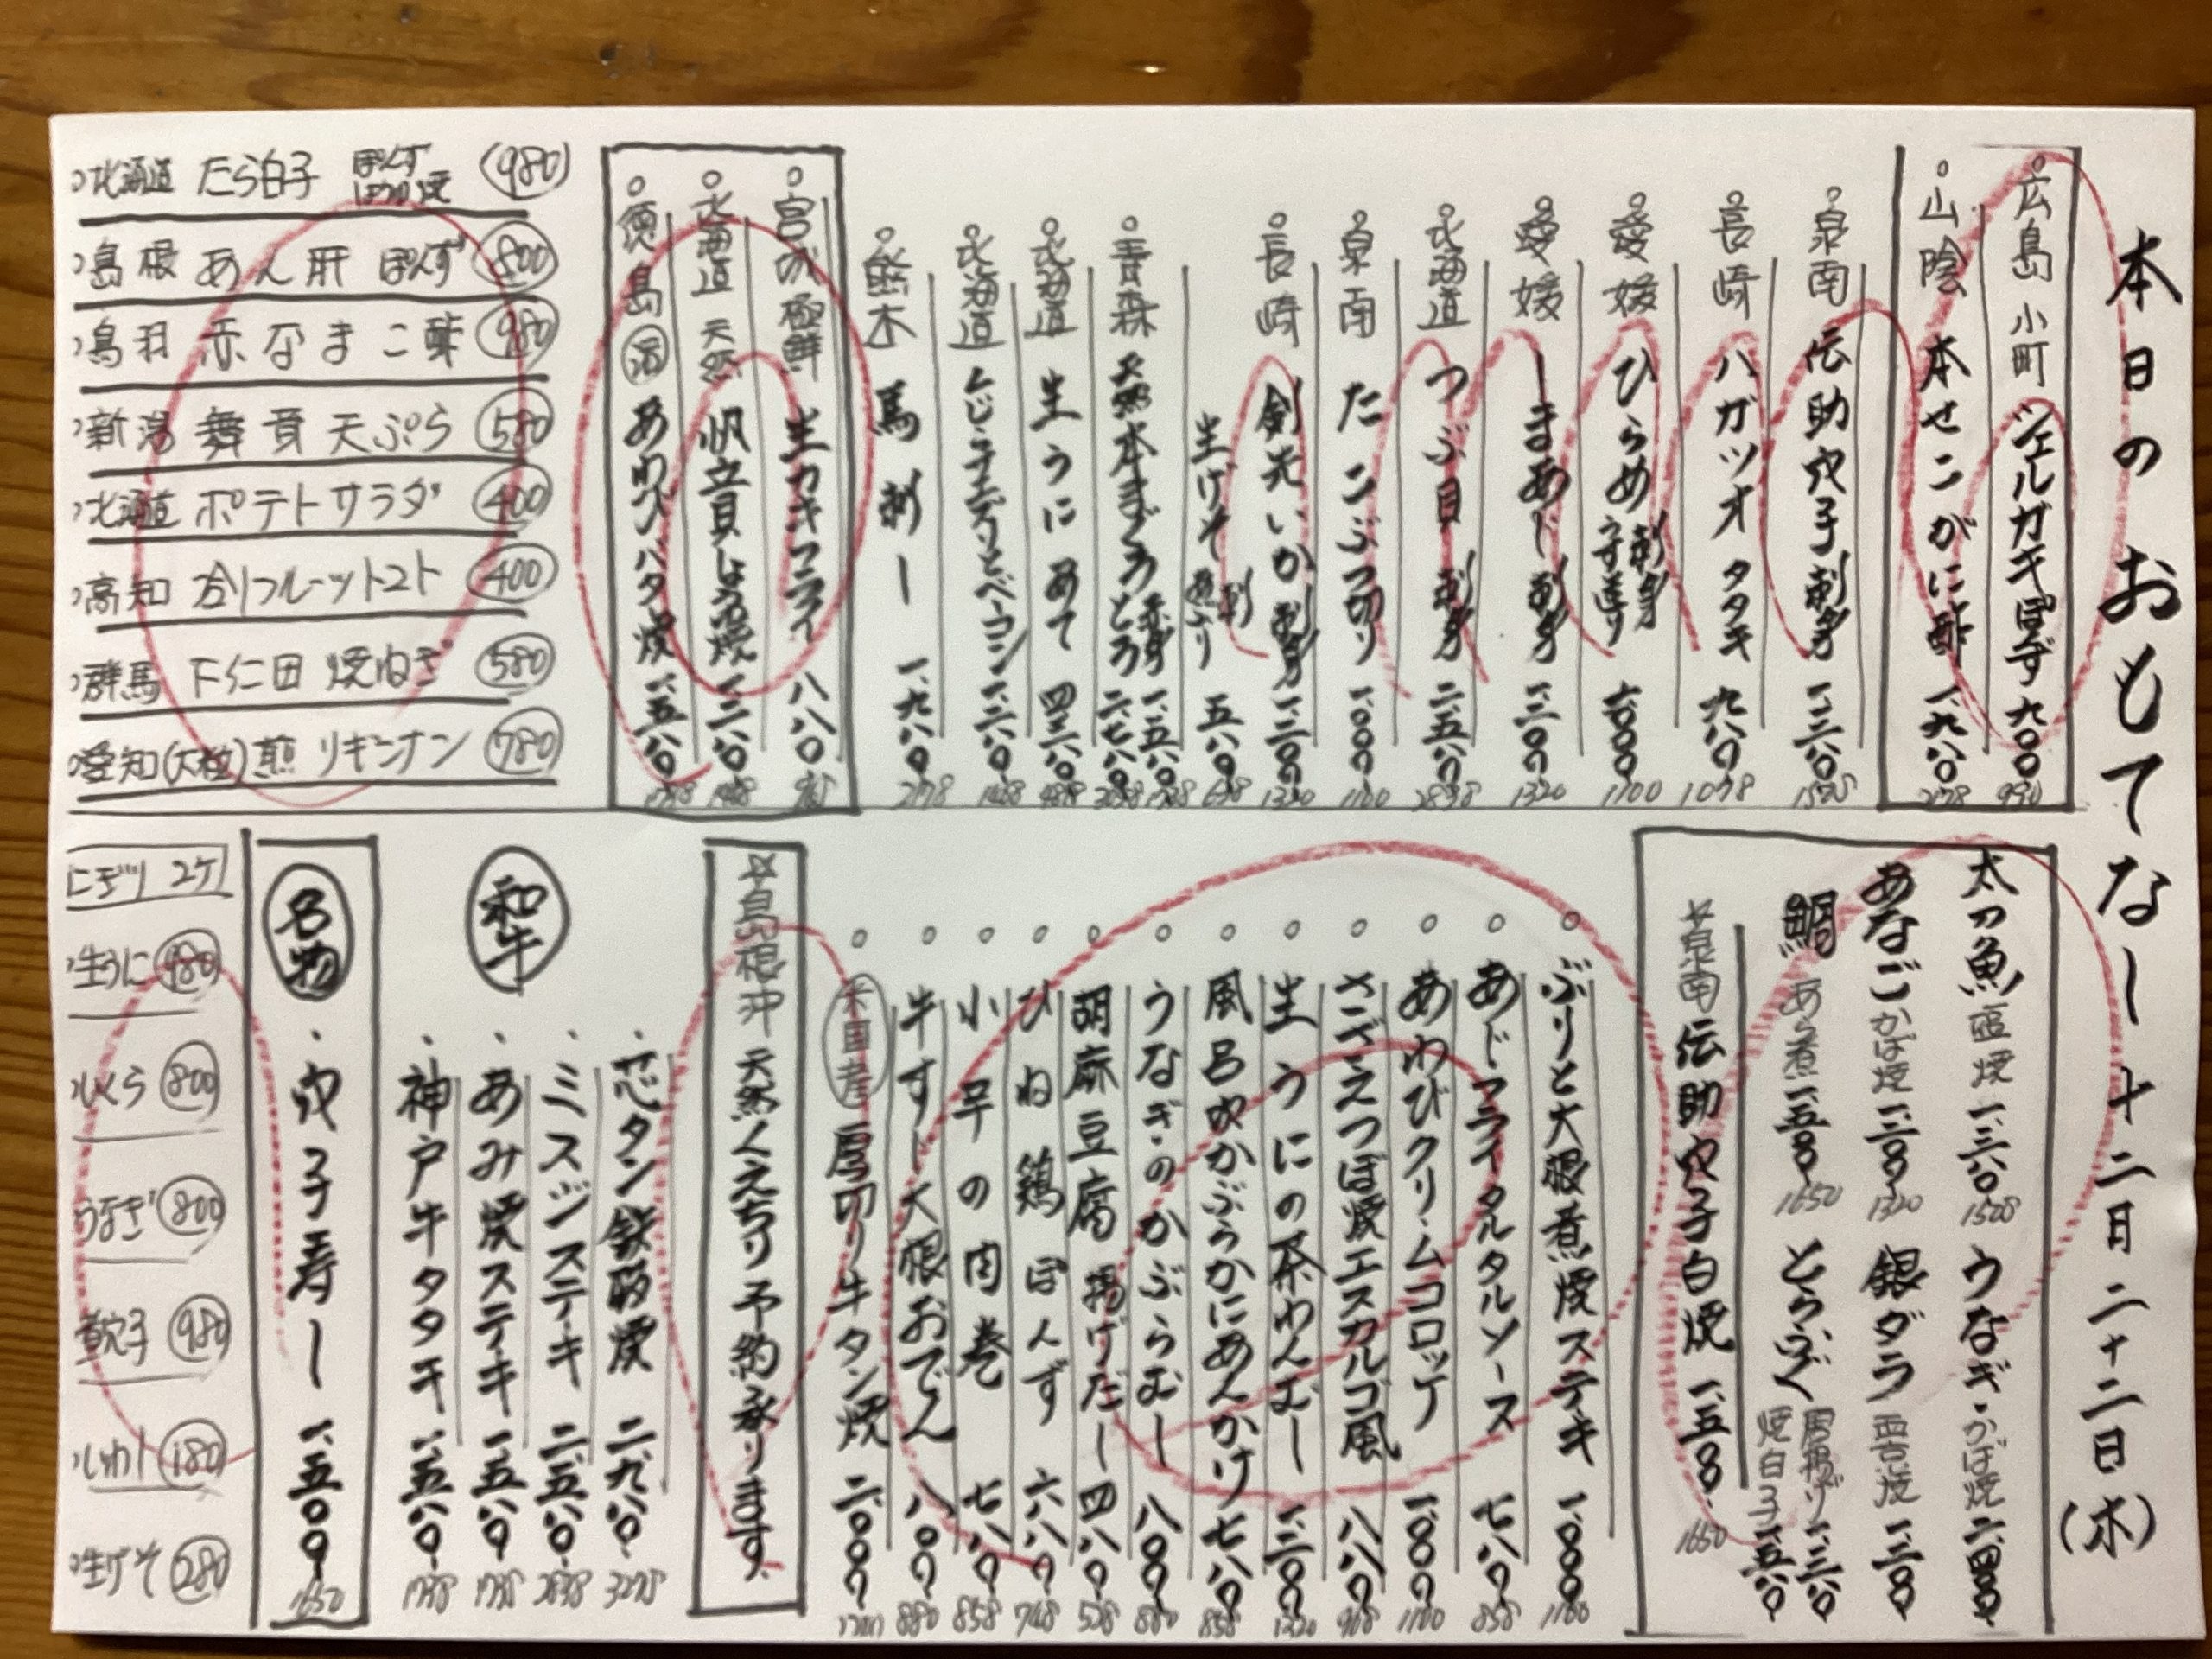 本日のおもてなし 十二月二十二日(木)
○広島 小町 シェルガキぽんず 九〇〇 990
○山陰 本せこがに酢 一、九八〇 2178
○泉南 伝助穴子 刺身 一、三八〇 1528
○長崎 ハガツオ タタキ 九八〇 1078
○愛媛 ひらめ 刺身 薄造り 一、〇〇〇 1100
○愛媛 しまあじ 刺身 一、二〇〇 1320
○北海道 つぶ貝 刺身 二、五八〇 2838
○泉南 たこぶつ切り 一、〇〇〇 1100
○長崎 剣先いか 刺身 一、二〇〇 1320
生げそ 刺 炙り 五八〇 638
○青森 天然本まぐろ 赤身 一、五八〇 とろ 二、七八〇
○北海道 生うに あて 四、三八〇
○北海道 くじらユズリとベーコン 一、二八〇 1408
○熊本 馬刺し 一、九八〇 2178
○宮城 極鮮 生カキフライ 八八〇
○北海道 天然 帆立貝しょうゆ焼 一、二八〇 1408
○徳島 活 あわびバター焼 一、五八〇 1738
○北海道 たら白子 ぽんず 980
○島根 あん肝 ぽんず 800
○鳥羽 赤なまこ酢 980
○新潟 舞茸天ぷら 580
○北海道 ポテトサラダ 400
○高知 冷フルーツトマト 400
○群馬 下仁田 焼ねぎ 580
○愛知(大粒)煎りギンナン 780
太刀魚 塩焼 一、三八〇 1528 うなぎ・かば焼 二、四八〇
あなご かば焼 一、二〇〇 1320 銀ダラ 西京焼 一、二八〇
鯛 あら煮 一、五〇〇 1650 とらふぐ 唐揚げ 一、三八〇 焼白子 一、五八〇
☆泉南 伝助穴子白焼 一、五〇〇 1650
○ぶりと大根煮焼ステーキ 一、〇〇〇 1100
○あじフライタルタルソース 七八〇 858
○あわびクリームコロッケ 一、〇〇〇 1100
○さざえつぼ焼エスカルゴ風 八八〇 968
○生うにの茶わんむし 一、二〇〇 1320
○風呂吹かぶらかにあんかけ 七八〇 858
○うなぎ・のかぶらむし 八〇〇 880
○胡麻豆腐 揚げだし 四八〇 528
○ひね鶏ぽんず 六八〇 748
○小芋の肉巻 七八〇 858
○牛すじ大根おでん 八〇〇 880
○米国産 厚切り牛タン焼 二、〇〇〇
☆島根沖 天然くえちり予約承ります。
和牛
・芯タン鉄板焼 二、九八〇 3278
・ミスジステーキ 二、五八〇 2838
・あみ焼ステーキ 一、五八〇 1738
・神戸牛タタキ 一、五八〇 1738
名物
・穴子寿し 一、五〇〇 1650
にぎり 2ケ
○生うに 980
○いくら 800
うなぎ 800
煮穴子 980
○いわし 180
○生げそ 280